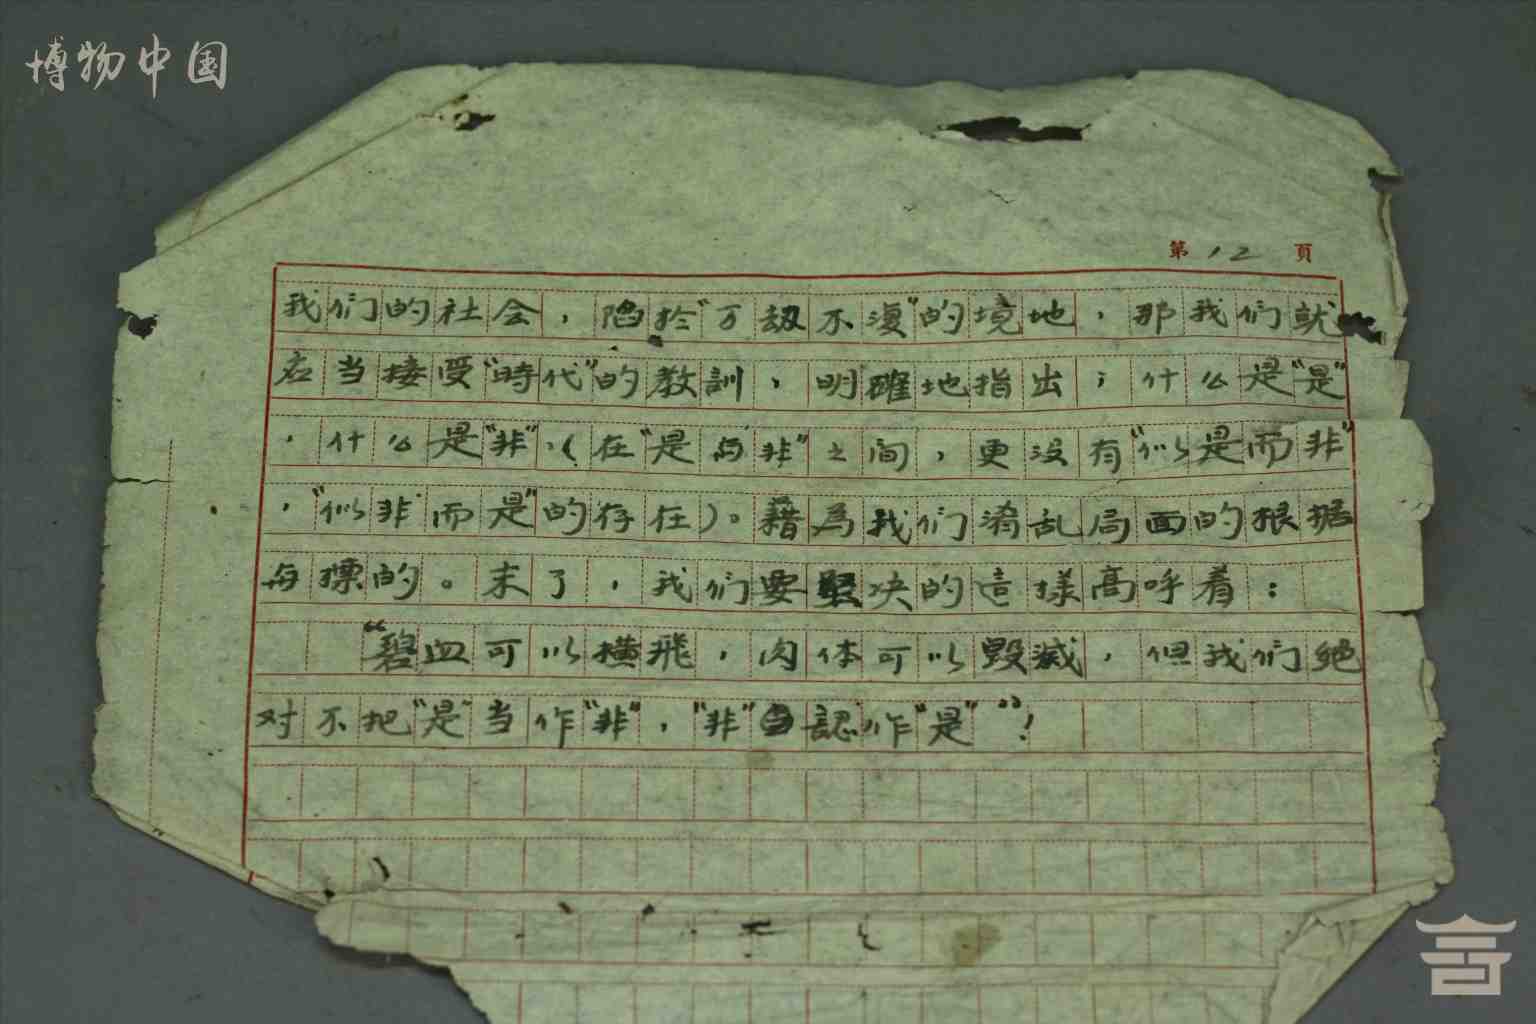 博物中国
第12頁
我们的社会，陷於“万劫不復”的境地，那我们就
应当接受“時代”的教訓，明確地指出；什么是“是”
，什么是“非”，（在“是与非”之间，更没有“似是而非”
，“似非而是”的存在）。藉為我们淆乱局面的根据
与標的。末了，我们要坚决的這樣高呼着：
“碧血可以横飛，肉体可以毀滅，但我们绝
对不把“是”当作“非”，“非”認作“是””！